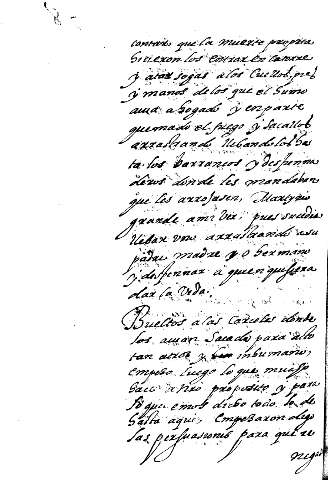 comun, que la muerte propria
hicieron los entrar en la torre
y atar sogas a los Cuellos, pies
y manos de los que el humo
auia ahogado y en parte
quemado el fuego y sacallos
arrastrando lleuandolos has
ta los barrancos y despeña
deros donde les mandaban
que los arrojasen, Martyrio
grande a mi Ver, pues sucedia
lleuar uno arrastrando a su
padre, madre y o hermano
y despeñar a quien quisiera
dar la Vida.
Bueltos a las Carceles donde
los auian Sacado para acto
tan atros y inhumano,
empeço luego lo que mucho
hace a mi proposito y para
lo que emos dicho todo lo de
hasta aqui, Empeçaron
las persuasiones para que re
negu